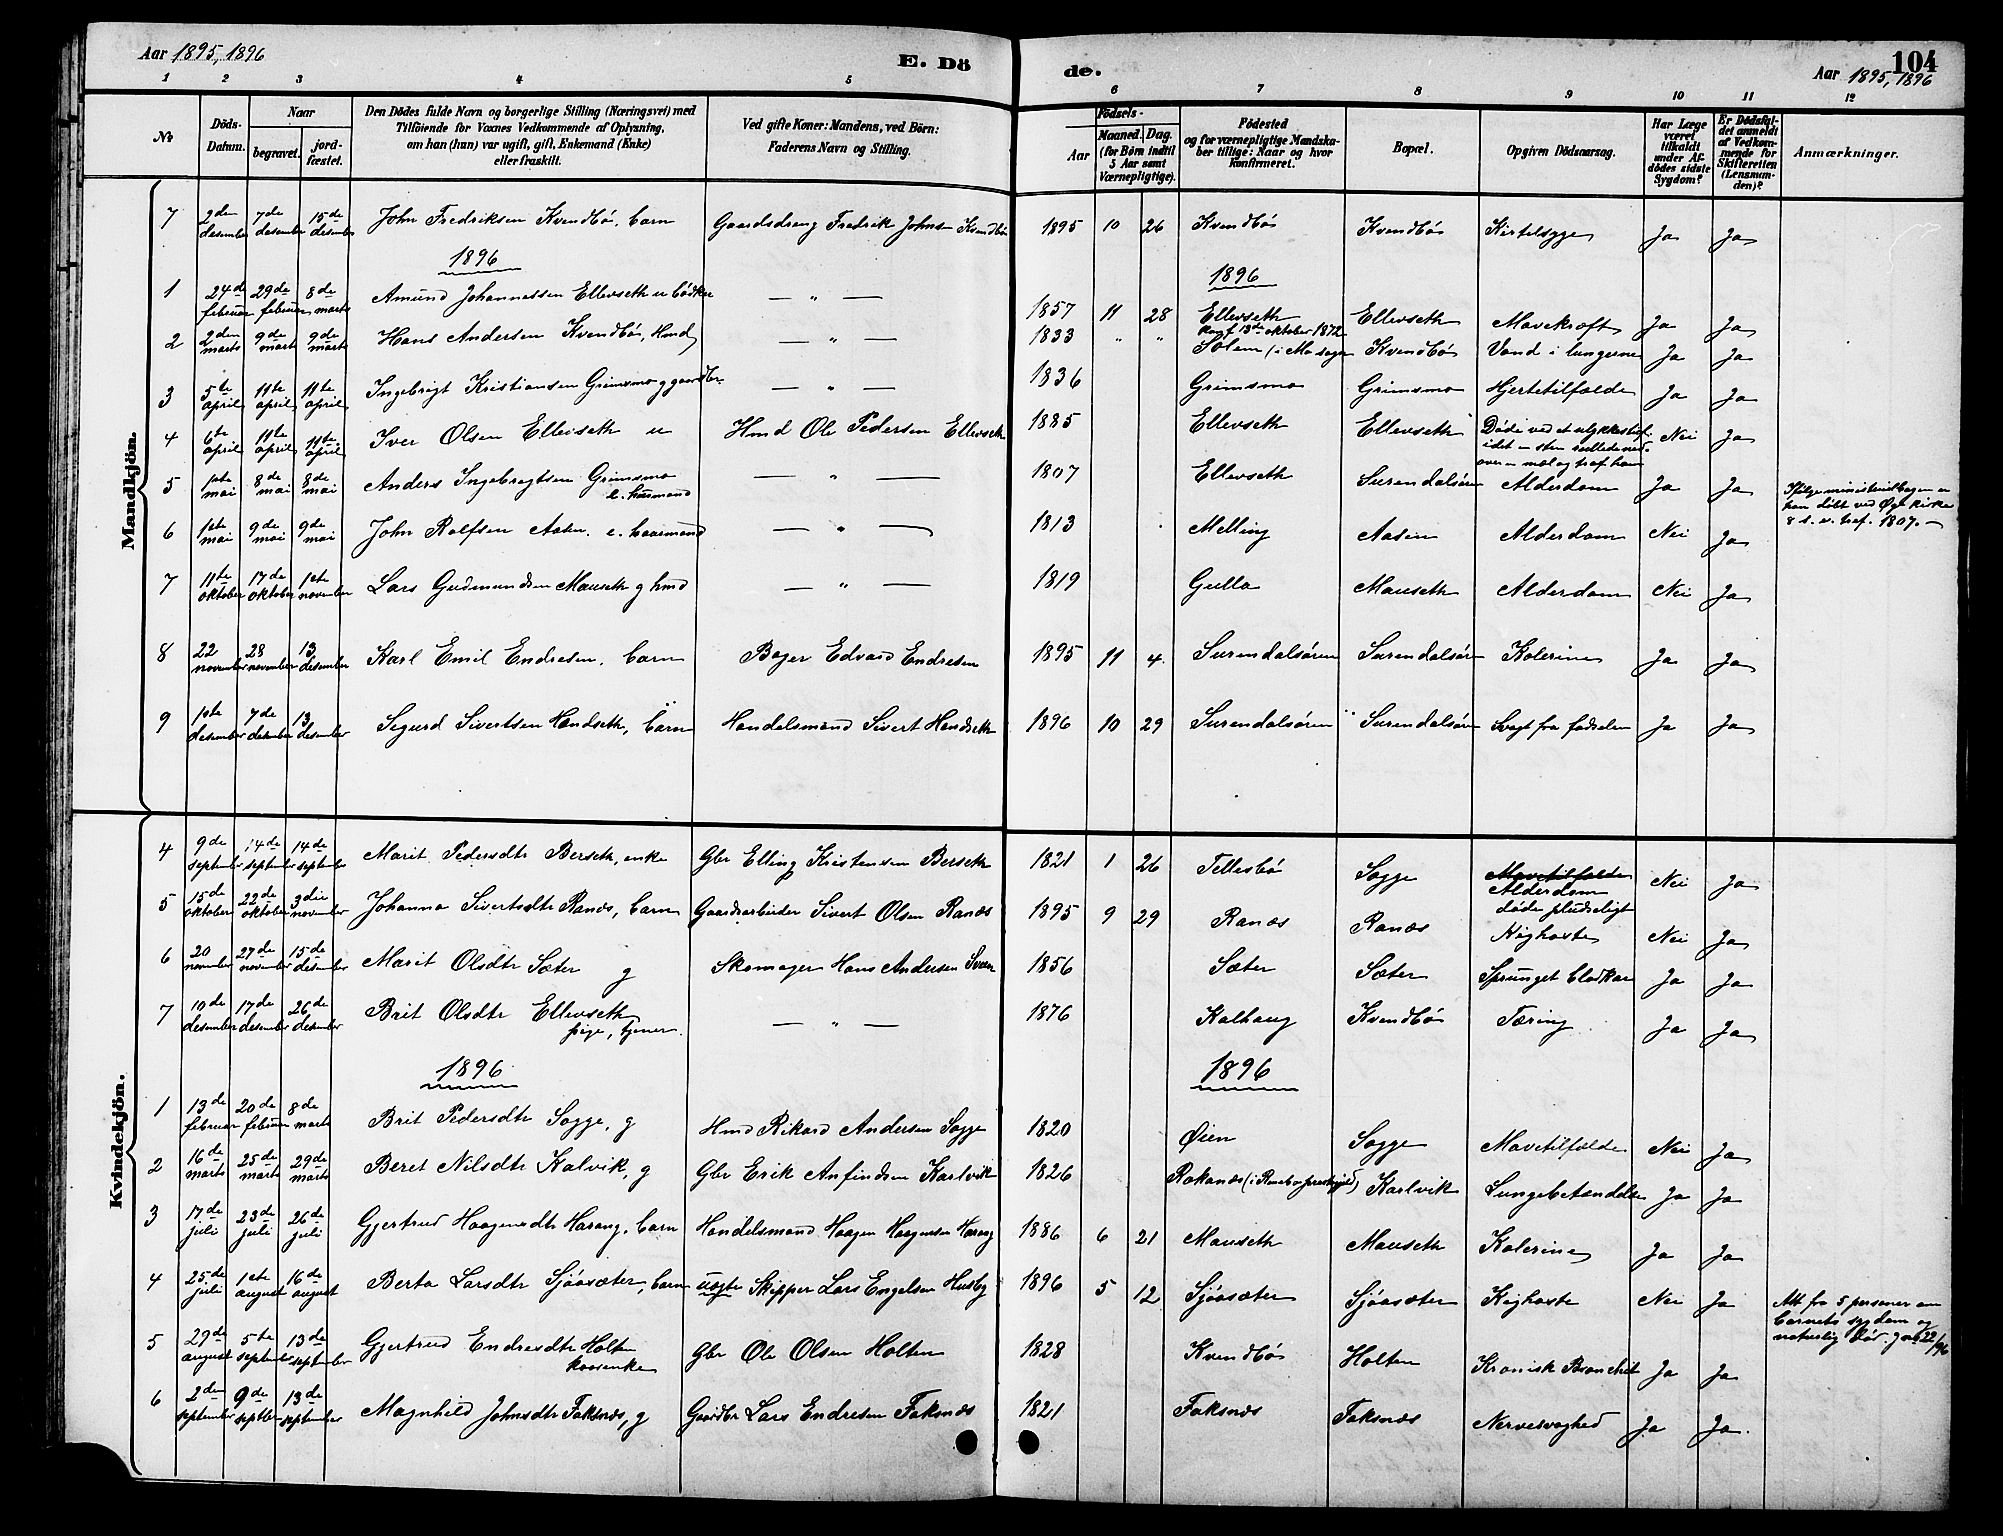 Aar 1895, 1896
E. Dö
de.
Aar 1895, 1896
104
1 2 3 4 5 6 7 8 9 10 11 12
No
Döds-Datum.
Naar
begravet.
jord-fæstet.
Den Dödes fulde Navn og borgerlige Stilling (Næringsvei) med
Tilföiende for Voxnes Vedkommende af Oplysning,
om han (hun) var ugift, gift, Enkemand (Enke)
eller fraskilt.
Ved gifte Koner: Mandens, ved Börn:
Faderens Navn og Stilling.
Födsels-
Aar
Maaned. Dag.
(for Börn indtil
5 Aar samt
Værnepligtige).
Födested
og for værnepligtige Mandska-
ber tillige: Naar og hvor
konfirmeret.
Bopæl.
Opgiven Dödsaarsag.
Har Læge
været
tilkaldt
under Af-
dödes sidste
Sygdom?
Er Dödsfal-
det anmeldt
af Vedkom-
mende for
Skifteretten
(Lensman-
den)?
Anmærkninger.
Mandkjön.
7 2den desember 7de desember 15de desember John Fredriksen Kvendbö, barn Gaardsdreng Fredrik Johns Kvendbö 1895 10 26 Kvendbö Kvendbö Kirtelsyge Ja Ja
1896 1896
1 24de februar 29de februar 8de marts Amund Johannessen Ellevseth u bödker — " — 1857 11 28 Ellevseth Ellevseth Mavekræft Ja Ja
konf. 13de oktober 1872
2 2den marts 9de marts 9de marts Hans Andersen Kvendbö, Hmd — " — 1833 " " Solem (i Mo sogn Kvendbö Vand i lungerne Ja Ja
3 5te april 11te april 11te april Ingebrigt Kristiansen Grimsmo g gaardbr. — " — 1836 Grimsmo Grimsmo Hjertetilfælde Ja Ja
4 6te april 11te april 11te april Iver Olsen Ellevseth u Hmd Ole Pedersen Ellevseth 1885 Ellevseth Ellevseth Döde ved et ulykkestilf.
idet en sten rullede ned-
over en mæl og traf ham Nei Ja
5 1ste mai 8de mai 8de mai Anders Ingebrigtsen Grimsmo
e. husmand — " — 1807 Ellevseth Surendalsören Alderdom Ja Ja Ifölge ministerialbogen er
han döbt ved Øye kirke
8 s. e. tref. 1807. —
6 1ste mai 9de mai 9de mai John Rolfsen Aasen. e. kaarmand — " — 1813 Melling Aasen Alderdom Nei Ja
7 11te oktober 17de oktober 1ste november Lars Gudmundsen Mauseth g hmd — " — 1819 Gulla Mauseth Alderdom Nei Ja
8 22 november 28 november 13 desember Karl Emil Endresen, barn Bager Edvard Endresen 1895 11 4. Surendalsören Surendalsören Kolerine Ja Ja
9 1ste desember 7de desember 13 desember Sigurd Sivertsen Handseth, barn Handelsmand Sivert Handseth 1896 10 29 Surendalsören Surendalsören Svagt fra födselen Ja Ja
Kvindekjön.
4 9de september 14de september 14de september Marit Pedersdtr Berseth, enke Gbr Elling Kristensen Berseth 1821 1 26 Tellesbö Sogge Mavetilfælde
Alderdom
döde pludseligt Nei Ja
5 15de oktober 22de oktober 3die november Johanna Sivertsdtr Ranæs, barn Gaardsarbeider Sivert Olsen Ranæs 1895 9 29 Ranæs Ranæs Kighoste Nei Ja
6 20 november 27de november 15de desember Marit Olsdtr Sæter g Skomager Hans Andersen 1856 Sæter Sæter Sprunget blodkar Ja Ja
7 10de desember 17de desember 26de desember Brit Olsdtr Ellevseth
pige, tjener. — " — 1876 Kalhaug Kvendbö Tæring Ja Ja
1896 1896
1 13de februar 20de februar 8de marts Brit Pedersdtr Sogge, g Hmd Rikard Andersen Sogge 1820 Øien Sogge Mavetilfælde Nei Ja
2 16de marts 25de marts 29de marts Beret Nilsdtr Kalvik, g Gbr Erik Anfindsen Karlvik 1826 Rokanæs (i Rinebø præstegjeld) Karlvik Lungebetændelse Ja Ja
3 17de juli 23de juli 26de juli Gjertrud Haagensdtr Harang, barn Handelsmand Haagen Haagensen Harang 1886 6 21 Mauseth Mauseth Kolerine Ja Ja
4 25de juli 1ste august 16de august Berta Larsdtr Sjöasæter, barn uægte Skipper Lars Engelsen Husby 1896 5 12 Sjöasæter Sjöasæter Kighoste Nei Ja Att fra 5 personer om
barnets sygdom og
naturlig död. J no 622/96
5 29de august 5te september 13de september Gjertrud Endresdtr Holten
kaarenke Gbr Ole Olsen Holten 1828 Kvendbö Holten Kronisk Bronchit Ja Ja
6 2den september 9de septber 13de september Magnhild Johnsdtr Faksnæs, g Gaardbr Lars Endresen Faksnæs 1821 Faksnæs Faksnæs Nervesvaghed Ja Ja.